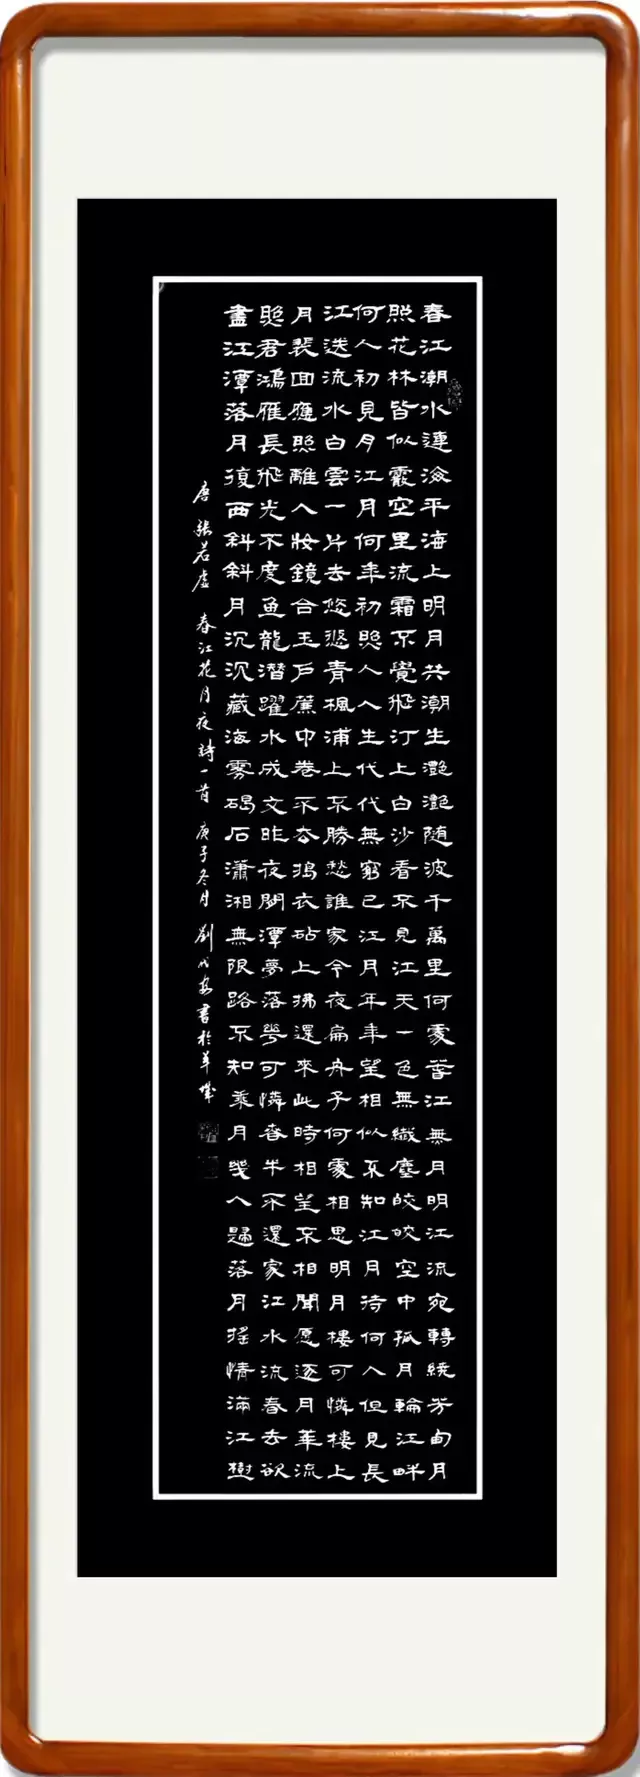 春江潮水連海平海上明月共潮生灧灧随波千萬里何處春江無月明江流宛轉繞芳甸月
照花林皆似霰空里流霜不覺飛汀上白沙看不見江天一色無纖塵皎皎空中孤月輪江畔
何人初見月江月何年初照人人生代代無窮已江月年年望相似不知江月待何人但見長
江送流水白雲一片去悠悠青楓浦上不勝愁誰家今夜扁舟子何處相思明月樓可憐樓上
月裴回應照離人妝鏡合玉戶簾中卷不去搗衣砧上拂還來此時相望不相聞愿逐月華流
照君鴻雁長飛光不度魚龍潛躍水成文昨夜閑潭夢落花可憐春半不還家江水流春去欲
盡江潭落月復西斜斜月沉沉藏海霧碣石瀟湘無限路不知乘月幾人歸落月搖情滿江樹
唐 張若虛 春江花月夜詩一首 庚子冬月 劉成 書於